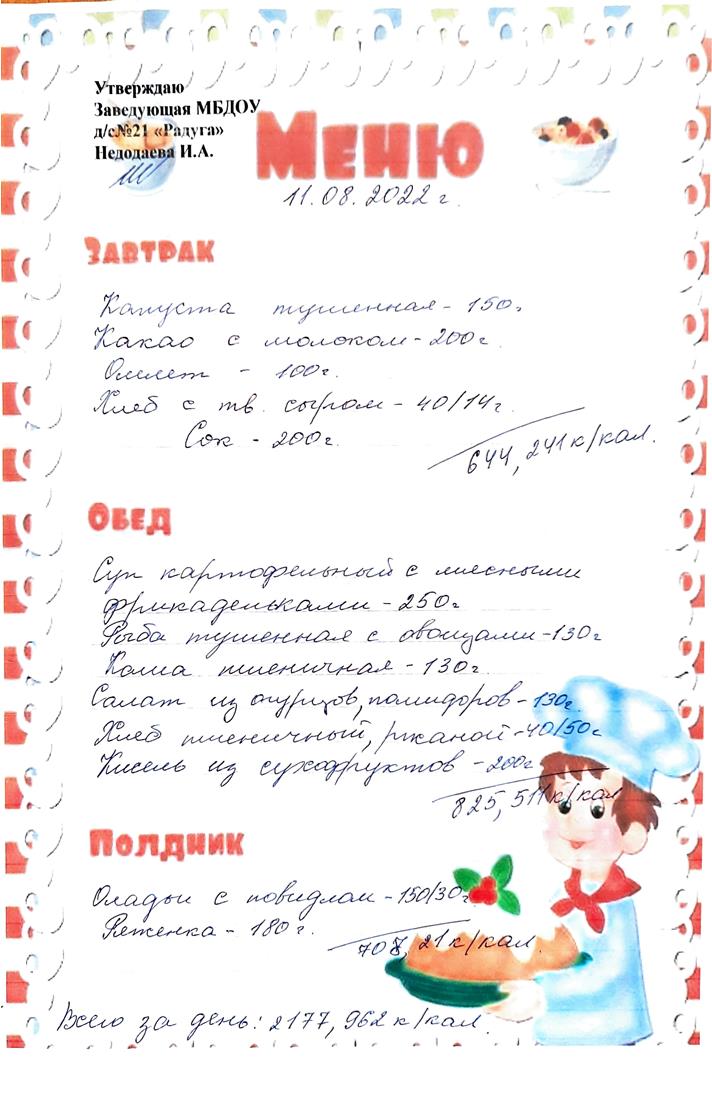 Утверждаю
Заведующая МБДОУ
д/с№21 «Радуга»
Недодаева И.А.
Меню
11.08.2022 г.
Завтрак
Капуста тушенная - 150г
Какао с молоком - 200г.
Омлет - 100г.
Хлеб с тв. сыром - 40/14г.
Сок - 200г.
644, 241 к/кал.
Обед
Суп картофельный с мясными
фрикадельками - 250г
Рыба тушенная с овощами - 130г
Каша пшеничная - 130г.
Салат из огурцов, помидоров - 130г.
Хлеб пшеничный, ржаной - 40/50г
Кисель из сухофруктов - 200г
825, 511 к/кал
Полдник
Оладьи с повидлом - 150/30г
Ряженка - 180г.
708, 21 к/кал.
Всего за день: 2177, 962 к/кал.